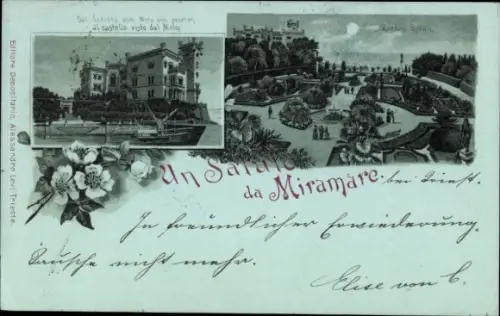 Das Schloss vom Molo aus gesehen.
Il castello visto dal Molo
Editore Depositario, Alessandro Levi-Trieste.
Un Saluto
da Miramare.
bei Triest.
In freundlicher Erwiederung.
Tausche nicht mehr.
Elise von C.